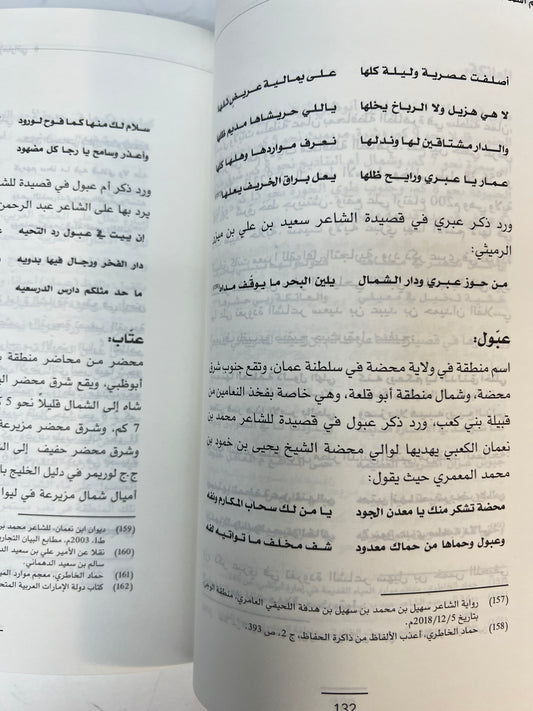 أصلفت عصرية وليلة كلها على يمالية عريض
لا هي هزيل ولا الرباخ يخلها ياللي حريشاها مديم
والدار مشتاقين لها وندلها نعرف مواردها وهلها
عمار يا عبري ورايح ظلها يعل براق الخريف يعلها
ورد ذكر عبري في قصيدة الشاعر سعيد بن علي بن
الرميثي:
من حوز عبري ودار الشمال يلين البحر ما يوقف
عبّول:
اسم منطقة في ولاية محضة في سلطنة عمان، وتقع جنوب شرق
محضة، وشمال منطقة أبو قلعة، وهي خاصة بفخذ النعامين من
قبيلة بني كعب، ورد ذكر عبول في قصيدة للشاعر محمد بن
نعمان الكعبي يهديها لوالي محضة الشيخ يحيى بن حمود بن
محمد المعمري حيث يقول:
محضة تشكر منك يا معدن الجود يا من لك سحاب المكارم
وعبول وحماها من حماك معدود شف مخلف ما تواتيه لفه
(157) رواية الشاعر سهيل بن محمد بن سهيل بن هدفة اللحيفي العامري، منطقة
بتاريخ 2018/12/5م.
(158) حماد الخاطري، أعذب الألفاظ من ذاكرة الحفاظ، ج 2، ص 393.
132
سلام لك منها كما فوح لورود
واعذر وسامح يا رجا كل مضهود
ورد ذكر أم عبول في قصيدة
يرد بها على الشاعر عبد الرحمن
إن بيت في عبول رد التحيه
دار الفخر ورجال فيها بدويه
ما حد مثلكم دارس الدرسعيه
عتّاب:
محضر من محاضر منطقة
أبوظبي، ويقع شرق محضر
شاه إلى الشمال قليلاً نحو 5
7 كم، وشرق محضر مزيرعة
وشرق محضر حفيف إلى
ج.ج لوريمر في دليل الخليج
أميال شمال مزيرعة في ليوا
(159) ديوان ابن نعمان، للشاعر محمد
ط1، 2003م، مطابع البيان
(160) نقلا عن الأمير علي بن سعيد
سالم بن سعيد الدهماني.
(161) حماد الخاطري، معجم موارد
(162) كتاب دولة الإمارات العربية